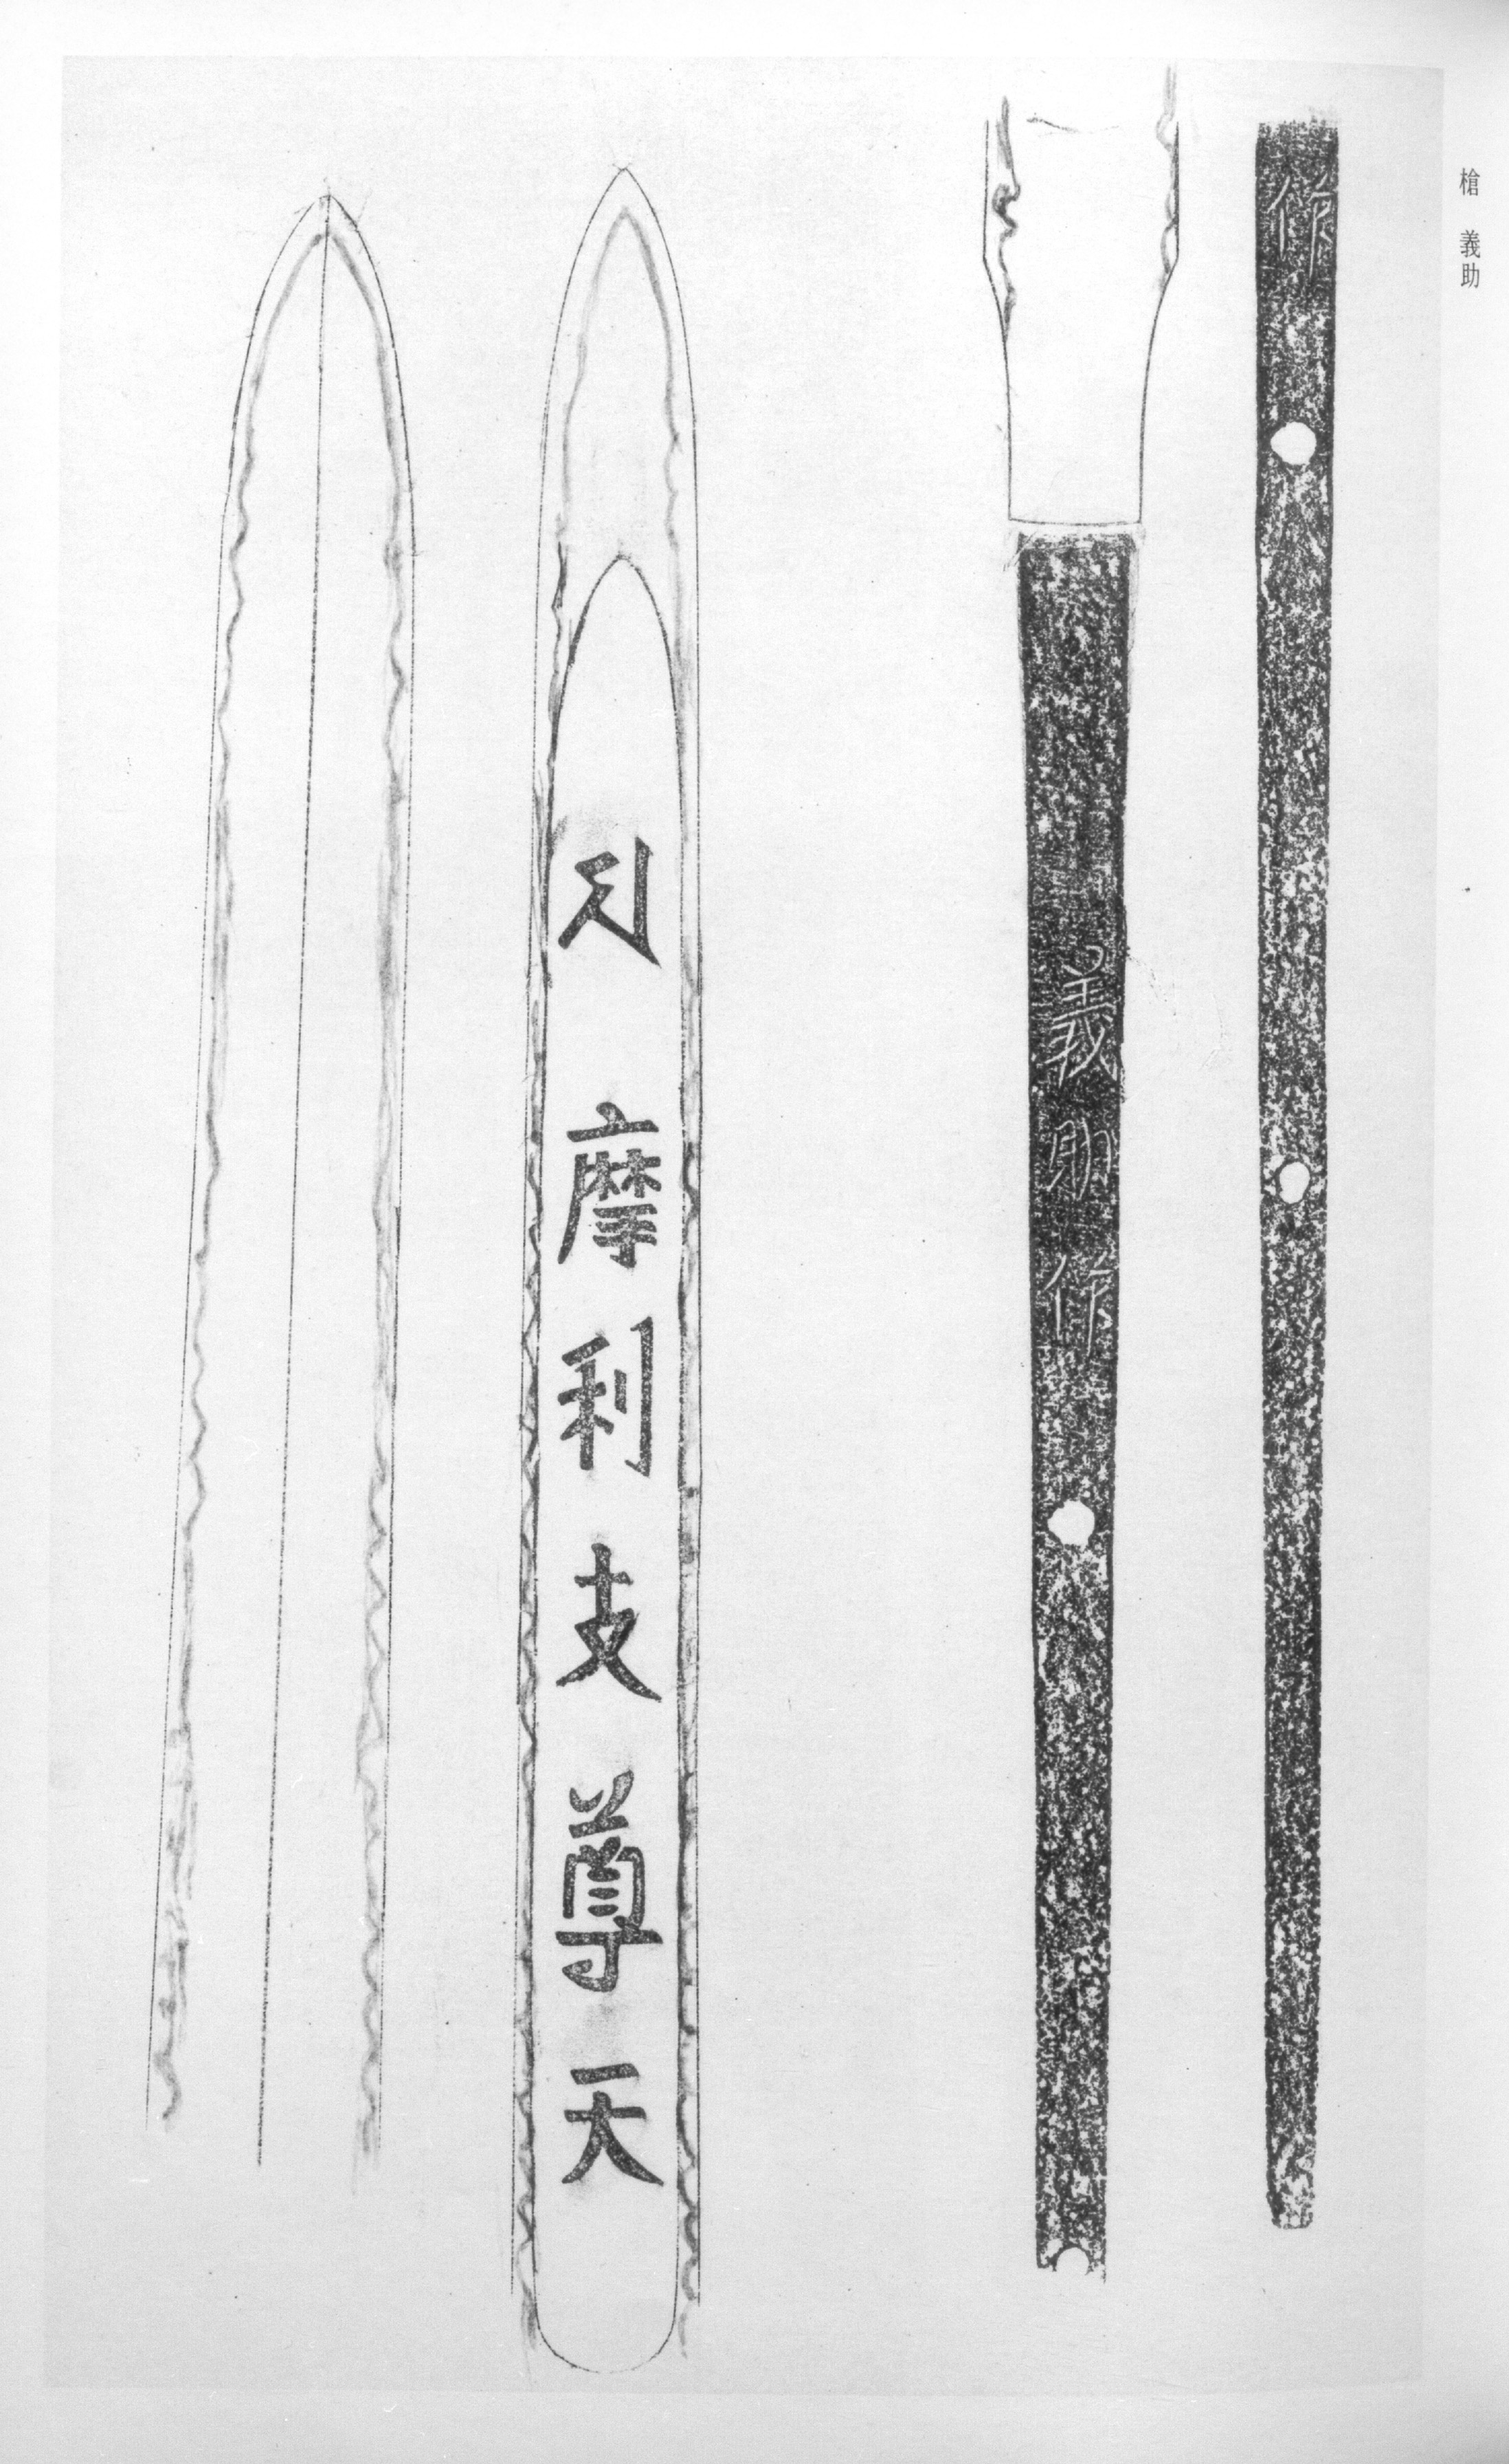 槍 義助
作
義助作
摩利支尊天